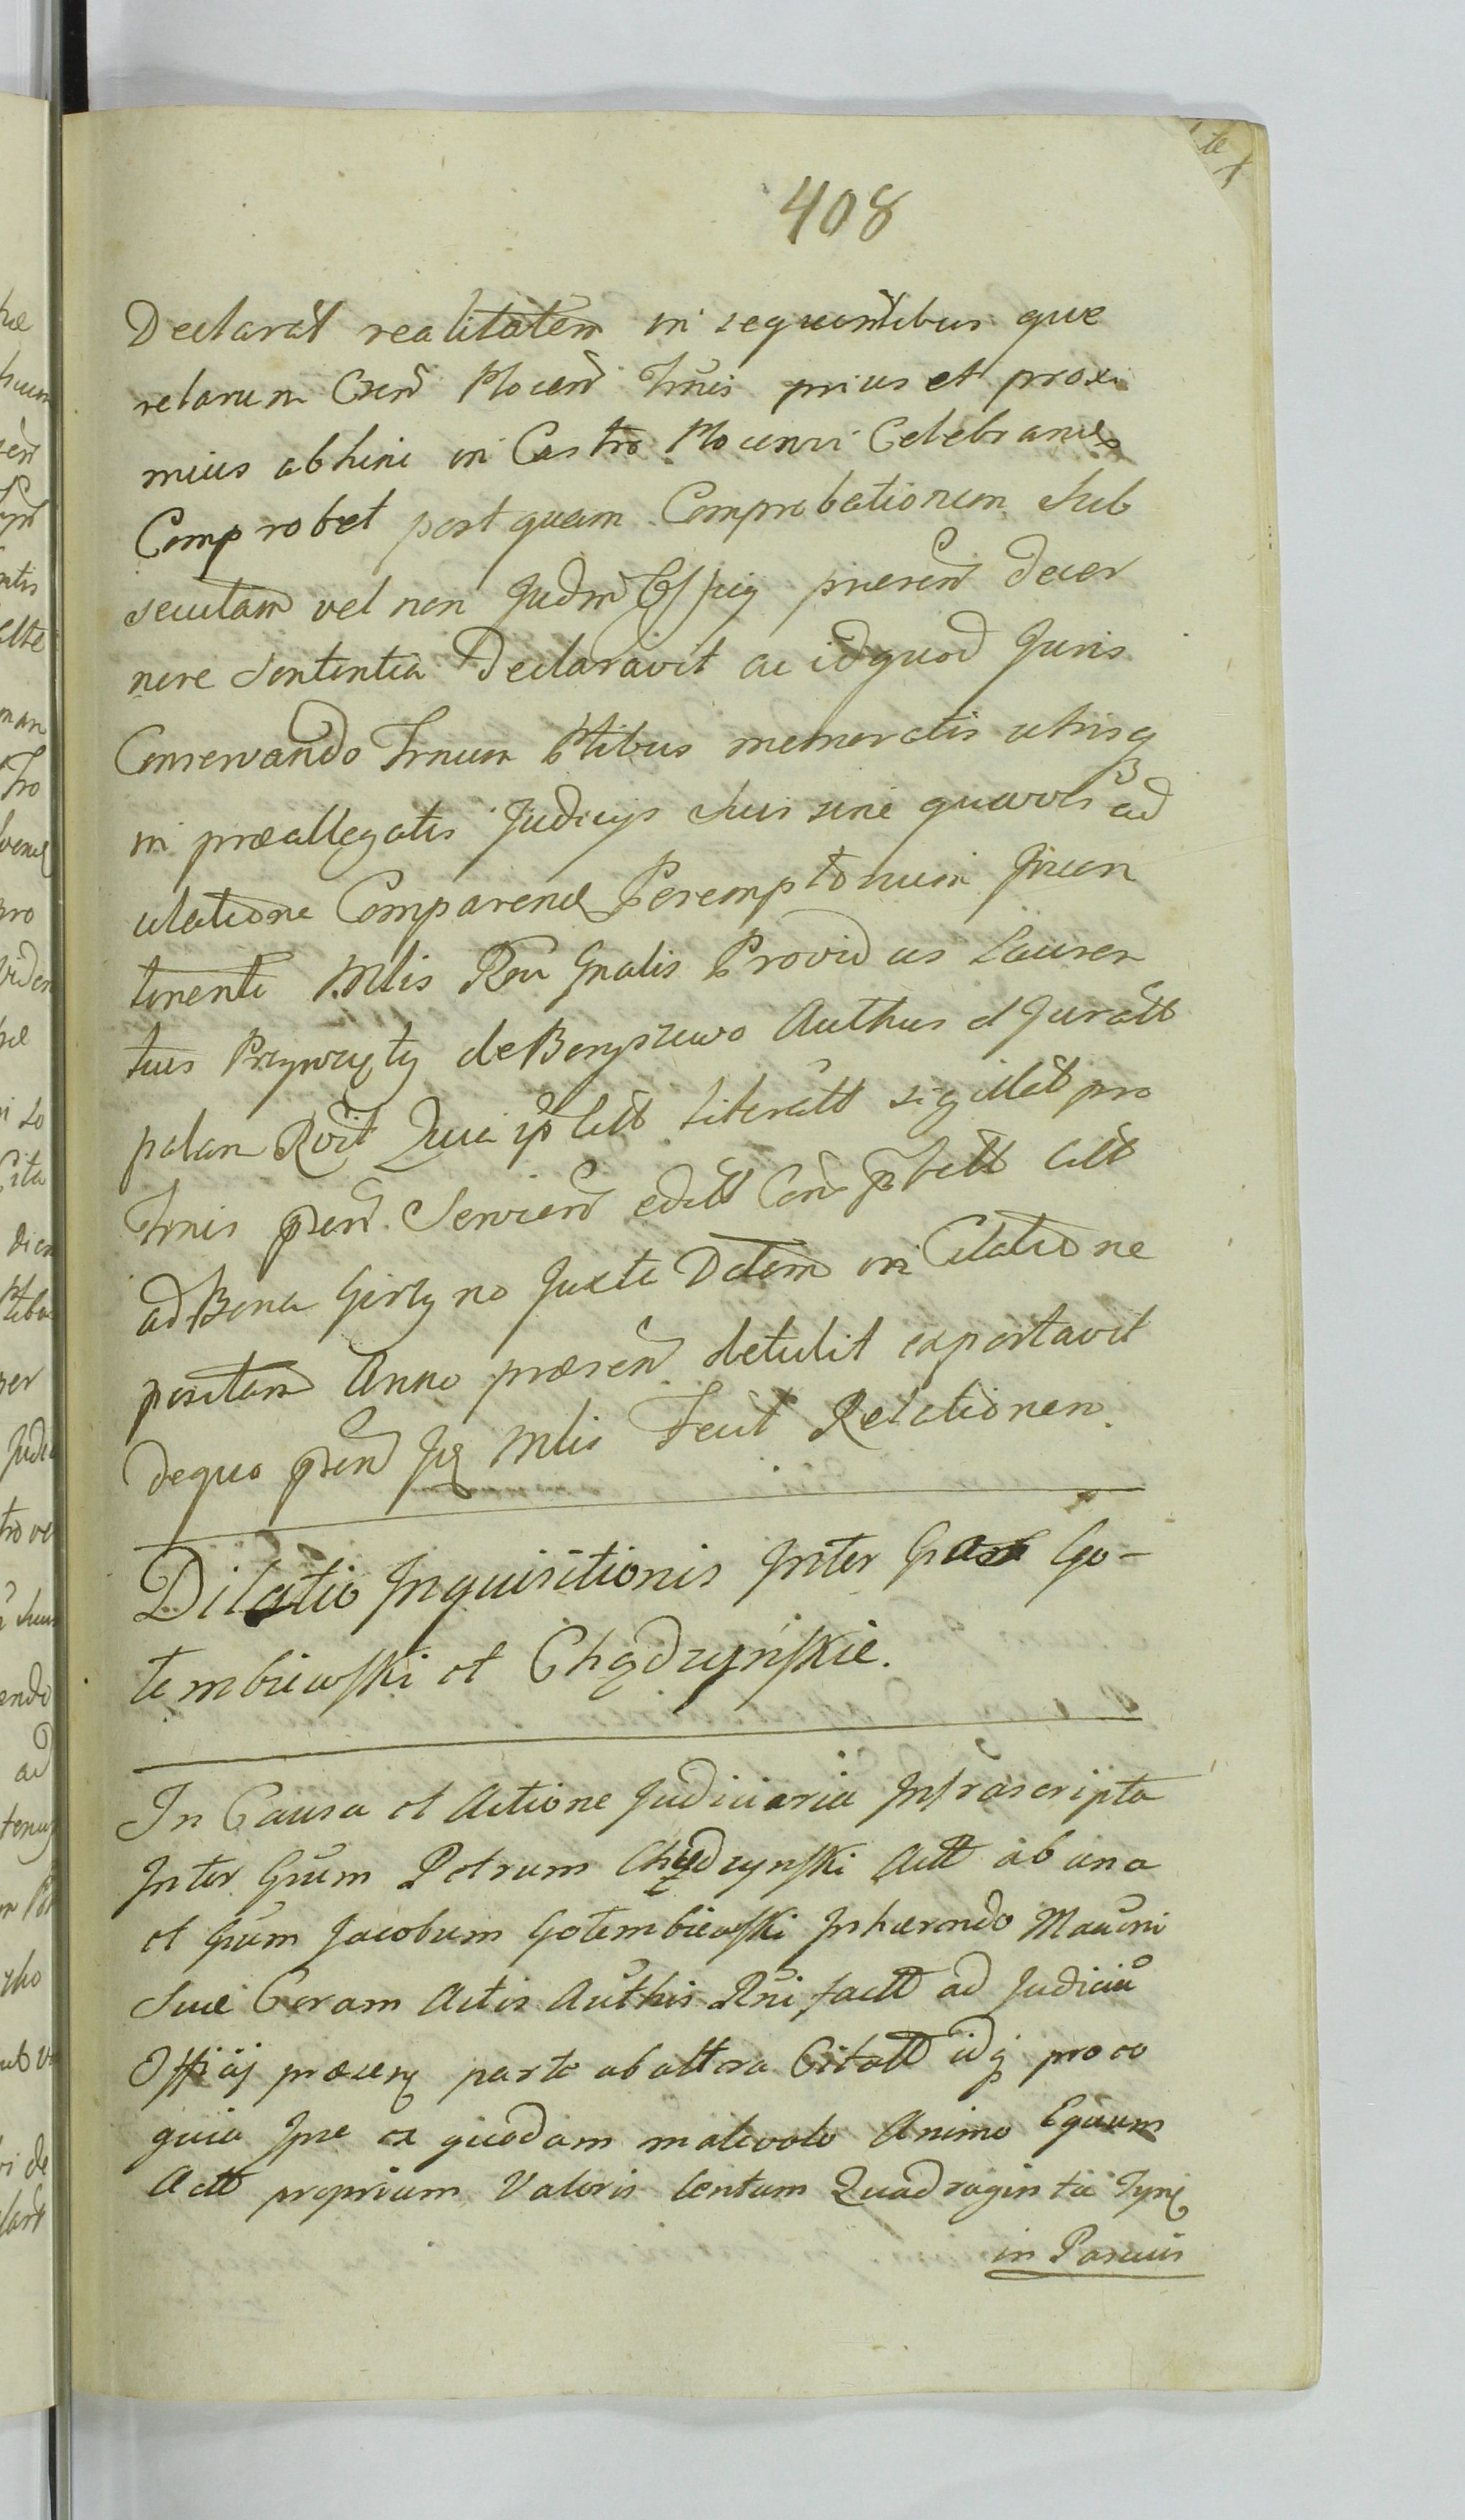 408
Declarat realitatem in sequentibus que
relarum Csen Plocen Trnis prius et proxi
mius abhinc in Castro Plocensi Celebrand
Comprobet postquam Comprobationem sub
secutam vel non Judm Offcij presen decer
nere Sententia Declaravit ac idquod Juris
Conservando Trnum Ptibus memoratis utrisq
in præallegatis Judicijs suis sine quavis ad
citatione Comparend Peremptorium
tinenti Mlis Rni Gnalis Providus Lauren
tius Przywzięty de Boryszewo Authus et Juratt
palam Rcvit Quia is litt literatt sigillat pro
Trnis psen Servien editt Con ptatt Citt
ad Bona Gorzyno Juxta Datam in Citatione
positam Anno præsen detulit exportavit
dequo psen Jq Mlis Fecit Relationem.
Dilatio Inquisitionis Inter Gsos Go-
łembiewski et Chądzyńskie.
In Causa et Actione Judiciaria Infrascripta
Inter Gsum Petrum Chądzynski Actt ab una
et Gsum Jacobum Gołembiewski Inhærendo Mancni
Suæ Coram Actis Authis Rni factt ad Judiciu
Officij præsenę parte ab altera Citatt idq pro eo
quia Ipse ex quodam malevolo Animo Equum
Actt proprium Valoris Centum Quadraginta Tynf
in Parvis